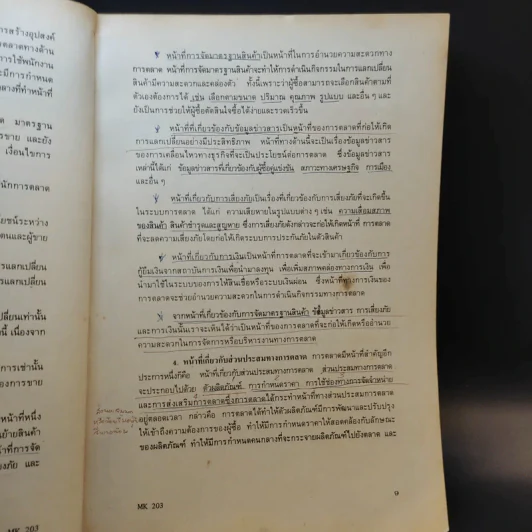 รสร้างอุปสงค์
ตลาดทางด้าน
การใช้พนักงาน
ะมีการกำหนด
ลางที่ทำหน้าที่
ด มาตรฐาน
รขาย และยัง
เงื่อนไขการ
นักการตลาด
ยชน์ระหว่าง
ตนและผู้ขาย
รแลกเปลี่ยน
ปลี่ยนเท่านั้น
นี้ เนื่องจาก
การเท่านั้น
ของการขาย
หน้าที่หนึ่ง
ย้ายสินค้า
หน้าที่การจัด
งภัย และ
MK 203
หน้าที่การจัดมาตรฐานสินค้าเป็นหน้าที่ในการอำนวยความสะดวกทาง
การตลาด หน้าที่การจัดมาตรฐานสินค้าจะทำให้การดำเนินกิจกรรมในการแลกเปลี่ยน
สินค้ามีความสะดวกและคล่องตัว ทั้งนี้เพราะว่าผู้ซื้อสามารถจะเลือกสินค้าตามที่
ตัวเองต้องการได้ เช่น เลือกตามขนาด ปริมาณ คุณภาพ รูปแบบ และอื่น ๆ และ
ยังเป็นการช่วยให้ผู้ซื้อตัดสินใจซื้อได้ง่ายและรวดเร็วขึ้น
หน้าที่ที่เกี่ยวข้องกับข้อมูลข่าวสารเป็นหน้าที่ของการตลาดที่ก่อให้เกิด
การแลกเปลี่ยนอย่างมีประสิทธิภาพ หน้าที่ทางด้านนี้จะเป็นเรื่องข้อมูลข่าวสาร
ของการเคลื่อนไหวทางธุรกิจที่จะเป็นประโยชน์ต่อการตลาด ซึ่งข้อมูลข่าวสาร
เหล่านี้ได้แก่ ข้อมูลข่าวสารที่เกี่ยวข้องกับผู้ซื้อคู่แข่งขัน สภาวะทางเศรษฐกิจ การเมือง
และอื่น ๆ
หน้าที่เกี่ยวกับการเสี่ยงภัยเป็นเรื่องที่เกี่ยวข้องกับการเสี่ยงภัยที่จะเกิดขึ้น
ในระบบการตลาด ได้แก่ ความเสียหายในรูปแบบต่าง ๆ เช่น ความเสื่อมสภาพ
ของสินค้า สินค้าชำรุดและสูญหาย ซึ่งการเสี่ยงภัยดังกล่าวจะก่อให้เกิดหน้าที่ การตลาด
ที่จะลดความเสี่ยงภัยโดยก่อให้เกิดระบบการประกันภัยในตัวสินค้า
หน้าที่เกี่ยวกับการเงินเป็นหน้าที่การตลาดที่จะเข้ามาเกี่ยวข้องกับการ
กู้ยืมเงินจากสถาบันการเงินเพื่อนำมาลงทุน เพื่อเพิ่มสภาพคล่องทางการเงิน เพื่อ
นำมาใช้ในระบบของการให้สินเชื่อหรือระบบเงินผ่อน ซึ่งหน้าที่ทางการเงินของ
การตลาดจะช่วยอำนวยความสะดวกในการดำเนินกิจกรรมทางการตลาด
จากหน้าที่เกี่ยวข้องกับการจัดมาตรฐานสินค้า ข้อมูลข่าวสาร การเสี่ยงภัย
และการเงินนั้นเราจะเห็นได้ว่าเป็นหน้าที่ของการตลาดที่จะก่อให้เกิดหรืออำนวย
ความสะดวกในการจัดการหรือบริหารงานทางการตลาด
4. หน้าที่เกี่ยวกับส่วนประสมทางการตลาด การตลาดมีหน้าที่สำคัญอีก
ประการหนึ่งก็คือ หน้าที่เกี่ยวกับส่วนประสมทางการตลาด ส่วนประสมทางการตลาด
จะประกอบไปด้วย ตัวผลิตภัณฑ์ การกำหนดราคา การใช้ช่องทางการจัดจำหน่าย
และการส่งเสริมการตลาดซึ่งการตลาดได้กระทำหน้าที่ทางส่วนประสมการตลาด
อยู่ตลอดเวลา กล่าวคือ การตลาดได้ทำให้ตัวผลิตภัณฑ์มีการพัฒนาและปรับปรุง
ให้เข้าถึงความต้องการของผู้ซื้อ ทำให้มีการกำหนดราคาให้สอดคล้องกับลักษณะ
ของผลิตภัณฑ์ ทำให้มีการกำหนดคนกลางที่จะกระจายผลิตภัณฑ์ไปยังตลาด และ
MK 203
9